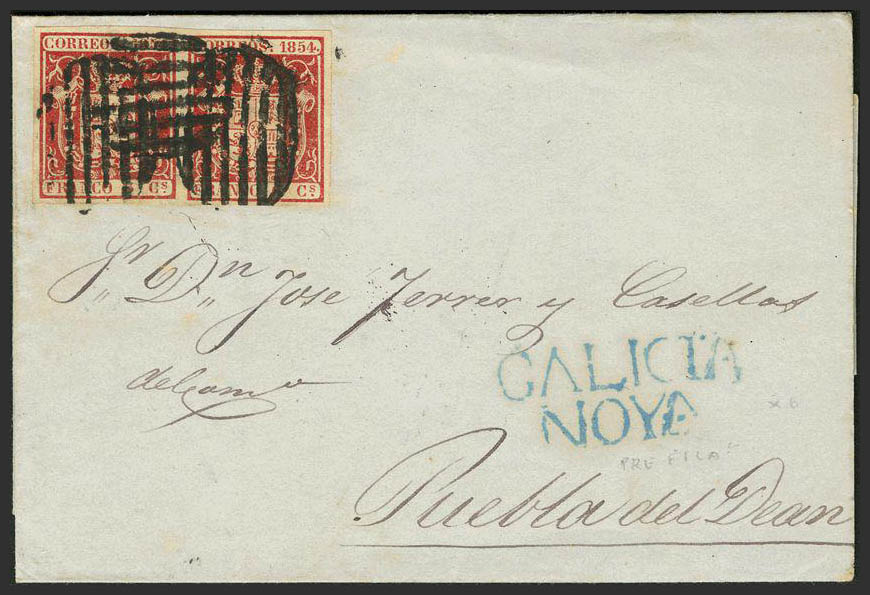 CORREOS 1854. CORREOS. 1854.
FRANCO Cs FRANCO Cs
Sr. Dn. Jose Ferrer y Casellas
del com.o
GALICIA
NOYA
x 6
PRE FILA
Puebla del Dean